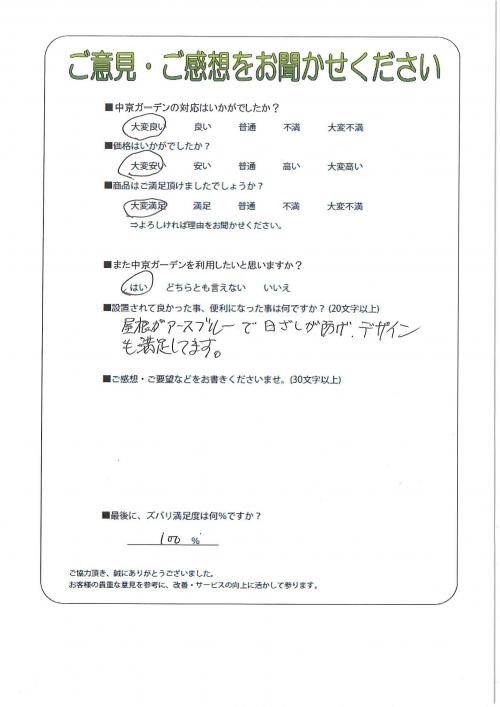 ご意見・ご感想をお聞かせください
■中京ガーデンの対応はいかがでしたか？
大変良い 良い 普通 不満 大変不満
■価格はいかがでしたか？
大変安い 安い 普通 高い 大変高い
■商品はご満足頂けましたでしょうか？
大変満足 満足 普通 不満 大変不満
⇒よろしければ理由をお聞かせください。
■また中京ガーデンを利用したいと思いますか？
はい どちらとも言えない いいえ
■設置されて良かった事、便利になった事は何ですか？(20文字以上)
屋根がアースブルーで日ざしが防げ、デザイン
も満足してます。
■ご感想・ご要望などをお書きくださいませ。(30文字以上)
■最後に、ズバリ満足度は何％ですか？
100 ％
ご協力頂き、誠にありがとうございました。
お客様の貴重な意見を参考に、改善・サービスの向上に活かして参ります。